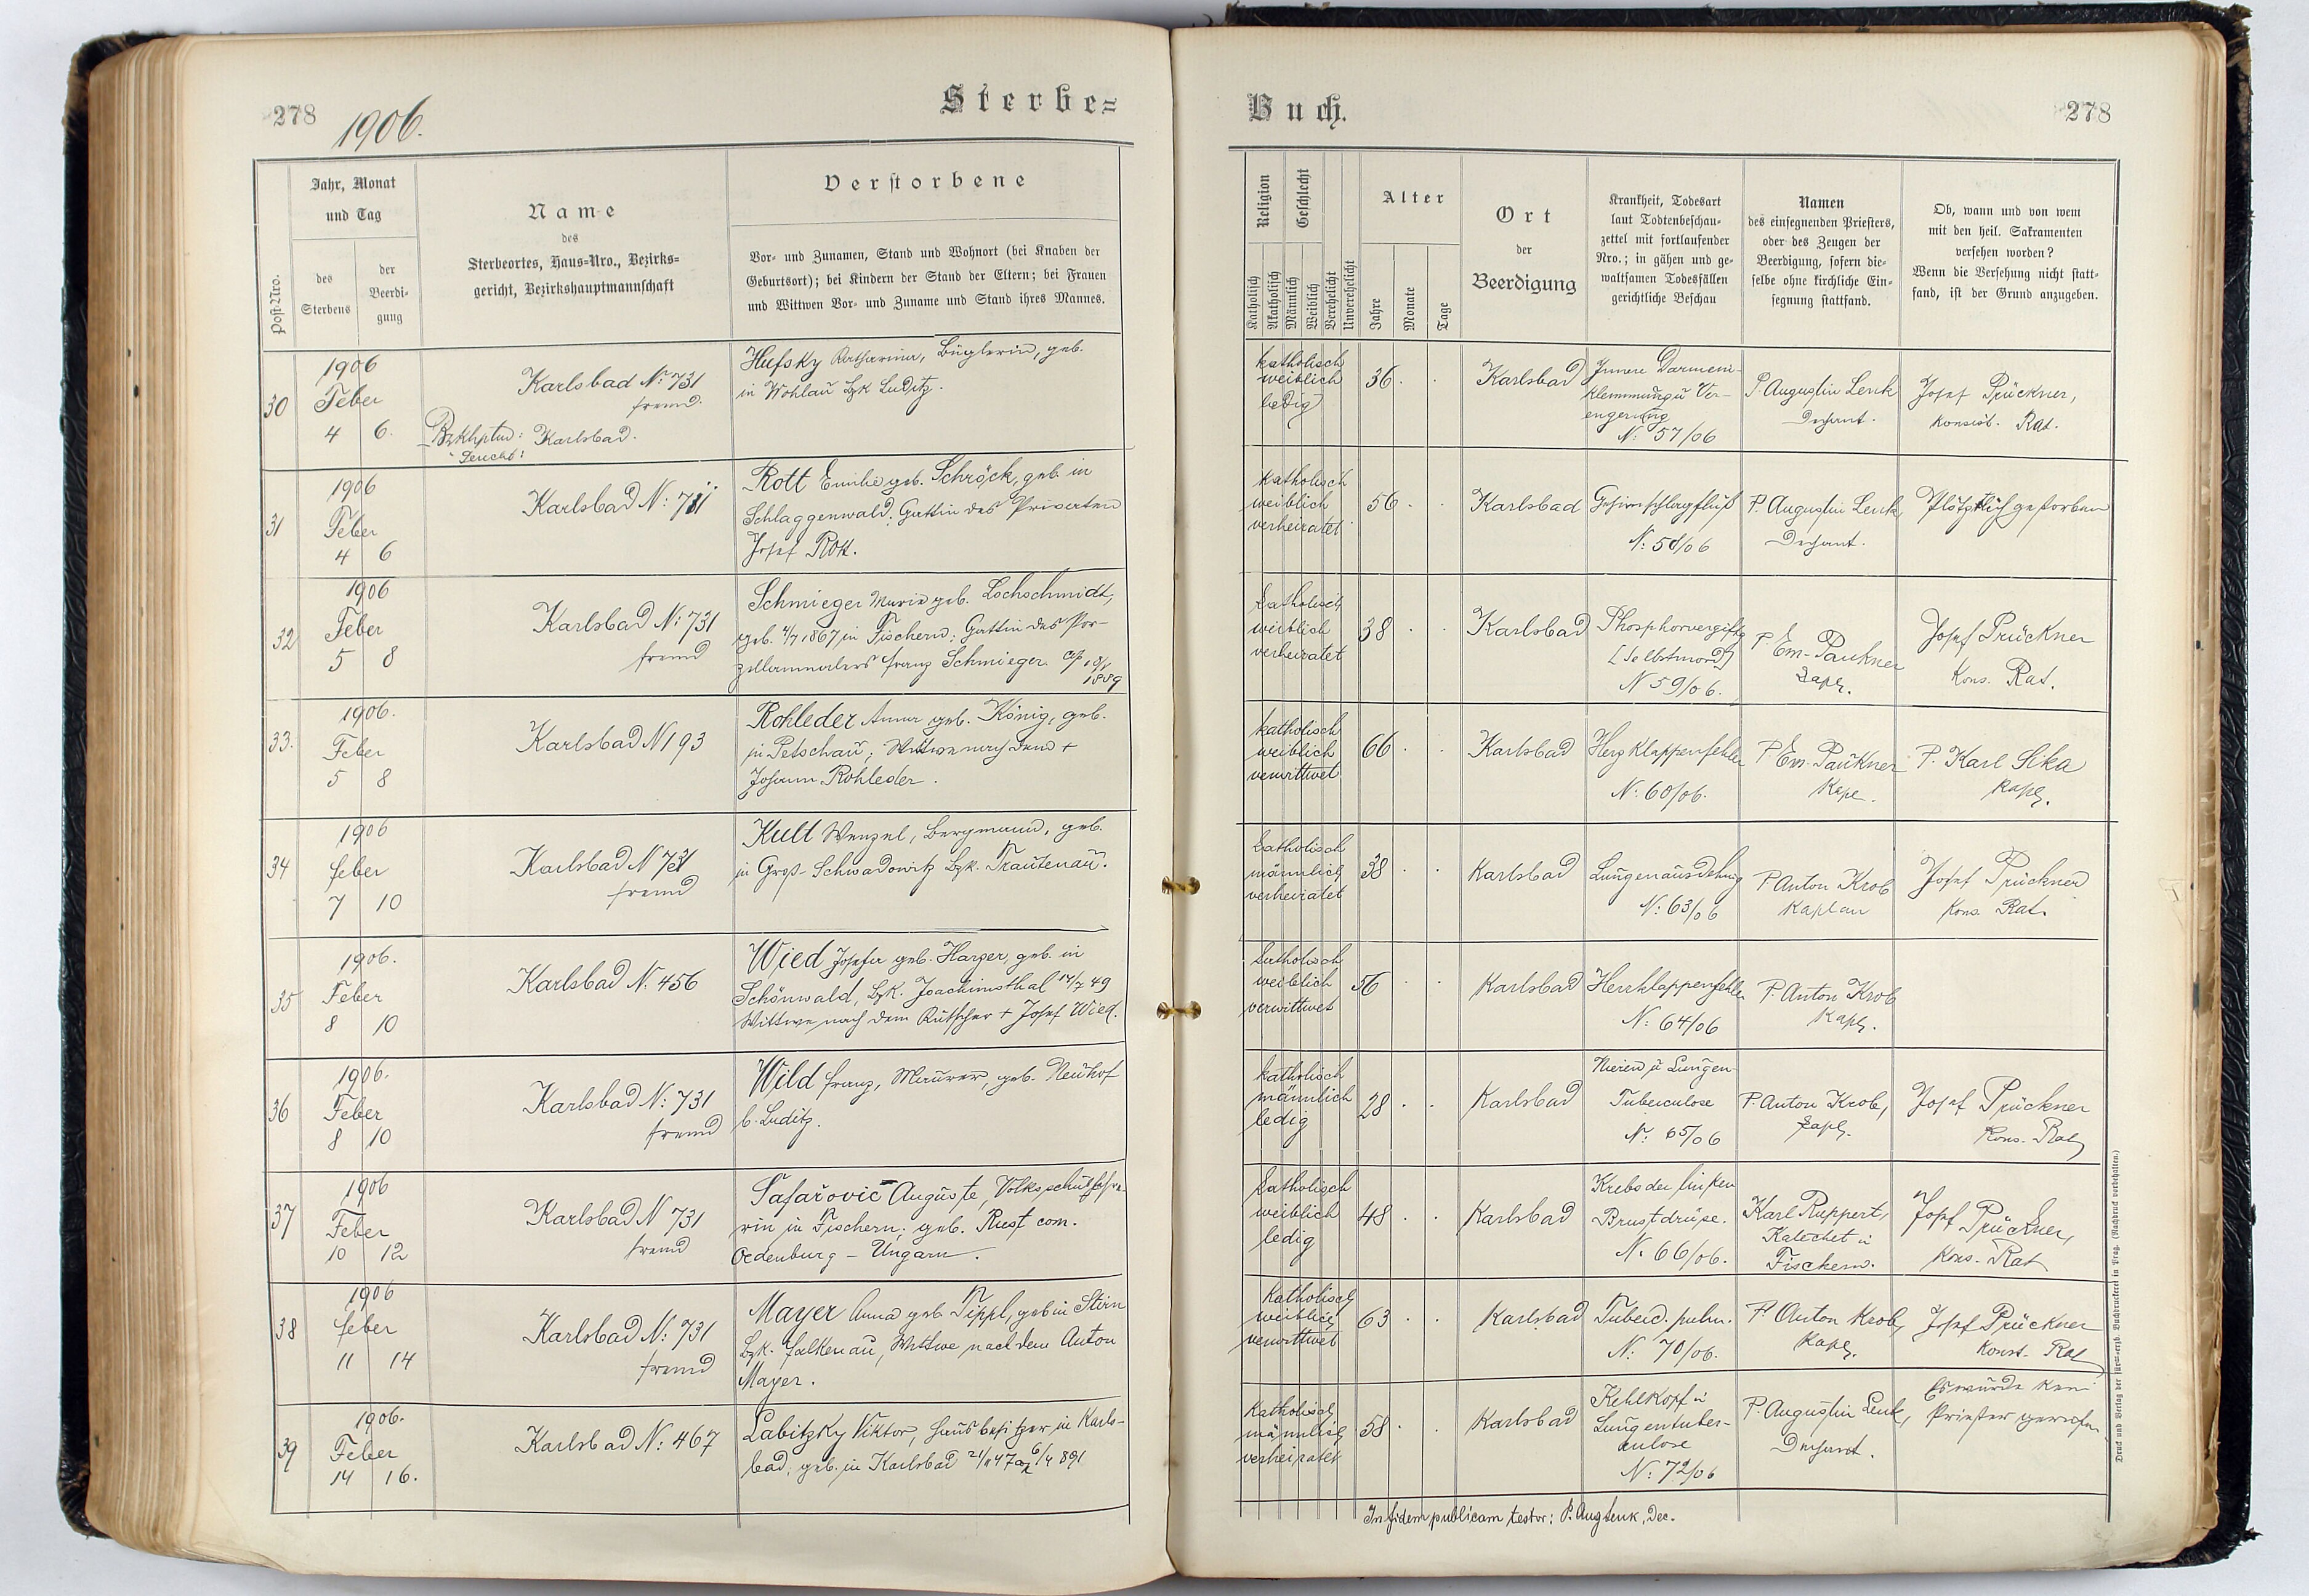 278
1906.
Sterbe=
Post-Nro.
Jahr, Monat
und Tag
des
Sterbens
der
Beerdi-
gung
Name
des
Sterbeortes, Haus=Nro., Bezirks=
gericht, Bezirkshauptmannschaft
Verstorbene
Vor- und Zunamen, Stand und Wohnort (bei Knaben der
Geburtsort); bei Kindern der Stand der Eltern; bei Frauen
und Wittwen Vor- und Zuname und Stand ihres Mannes.
30
1906
Feber
4 6.
Karlsbad No 731
fremd.
Bzkhptm: Karlsbad.
Hufsky Katharina, Büglerin, geb.
in Wohlau Bzk Luditz.
31
1906
Feber
4 6
Karlsbad N:
Rott Emilie geb. Schröck, geb. in
Schlaggenwald; Gattin des Privaten
Josef Rott.
32
1906
Feber
5 8
Karlsbad N: 731
fremd
Schmieger Marie geb. Lochschmidt,
geb. 4/7 1867, in Fischern; Gattin des Por-
zellanmalers Franz Schmieger.
1889
33.
1906.
Feber
5 8
Karlsbad N 193
Rohleder Anna geb. König, geb.
in Petschau; Wittwe nach dem +
Johann Rohleder.
34
1906
feber
7 10
Karlsbad N 731
fremd
Kult Wenzel, Bergmann, geb.
in Groß-Schwadowitz Bzk. Trautenau.
35
1906.
Feber
8 10
Karlsbad N: 456
Wied Josefa geb. Harzer, geb. in
Schönwald, Bzk. Joachimsthal 49
Wittwe nach dem Kutscher + Josef Wied.
36
1906.
Feber
8 10
Karlsbad N: 731
fremd
Wild Franz, Maurer, geb. Neuhof
b. Luditz.
37
1906
Feber
10 12
Karlsbad N 731
fremd
Safařovič Auguste, Volksschullehre-
rin in Fischern; geb. Rust com.
Oedenburg - Ungarn.
38
1906
feber
11 14
Karlsbad N: 731
fremd
Mayer Anna geb. Tippl, geb in Stirn
Bzk. Falkenau, Wittwe nach dem Anton
Mayer.
39
1906.
Feber
14 16.
Karlsbad N: 467
Labitzky Viktor, Hausbesitzer in Karls-
bad, geb. in Karlsbad
Buch.
278
Religion
Katholisch
Akatholisch
Geschlecht
Männlich
Weiblich
Verehelicht
Unverehelicht
Alter
Jahre
Monate
Tage
Ort
der
Beerdigung
Krankheit, Todesart
laut Todtenbeschau-
zettel mit fortlaufender
Nro.; in gähen und ge-
waltsamen Todesfällen
gerichtliche Beschau
Namen
des einsegnenden Priesters,
oder des Zeugen der
Beerdigung, sofern die-
selbe ohne kirchliche Ein-
segnung stattfand.
Ob, wann und von wem
mit den heil. Sakramenten
versehen worden?
Wenn die Versehung nicht statt-
fand, ist der Grund anzugeben.
katholisch
weiblich
ledig
36.
Karlsbad
Innere Darmein-
klemmung u Ver-
engerung
N: 57/06
P. Augustin Lenk
Dechant.
Josef Prückner,
konsist. Rat.
katholisch
weiblich
verheiratet
56
Karlsbad
Gehirnschlagfluß
N: 58/06
P. Augustin Lenk,
Dechant.
Plötzlich gestorben
katholisch
weiblich
verheiratet
38
Karlsbad
Phosphorvergiftg
[Selbstmord]
N 59/06.
P. Em. Paukner
Kapl.
Josef Prückner
Kons. Rat.
katholisch
weiblich
verwittwet
66
Karlsbad
Herzklappenfehler
N: 60/06.
P. Em. Paukner
Kapl.
P. Karl Slka
Kapl.
katholisch
männlich
verheiratet
38
Karlsbad
Lungenausdehng
N: 63/06
P. Anton Krob
Kaplan
Josef Prückner
Kons. Rat.
katholisch
weiblich
verwittwet
56
Karlsbad
Herzklappenfehler
N: 64/06
P. Anton Krob
Kapl.
katholisch
männlich
ledig
28
Karlsbad
Nieren u Lungen-
Tuberculose
N: 65/06
P. Anton Krob,
Kapl.
Josef Prückner
Kons. Rat
katholisch
weiblich
ledig
48
Karlsbad
Krebs der linken
Brustdrüse.
N: 66/06.
Karl Ruppert,
Katechet in
Fischern.
Josef Prückner,
Kons. Rat
katholisch
weiblich
verwittwet
63
Karlsbad
Tuberc. pulm.
N: 70/06.
P. Anton Krob,
Kapl.
Josef Prückner
Konst. Rat
katholisch
männlich
verheiratet
58
Karlsbad
Kehlkopf u
Lungentuber-
culose
N: 72/06
P. Augustin Lenk,
Dechant.
Es wurde kein
Priester gerufen
In fidem publicam testor: P. Aug Lenk, Dec.
Druck und Verlag der fürst-erzb. Buchdruckerei in Prag. (Nachdruck vorbehalten.)